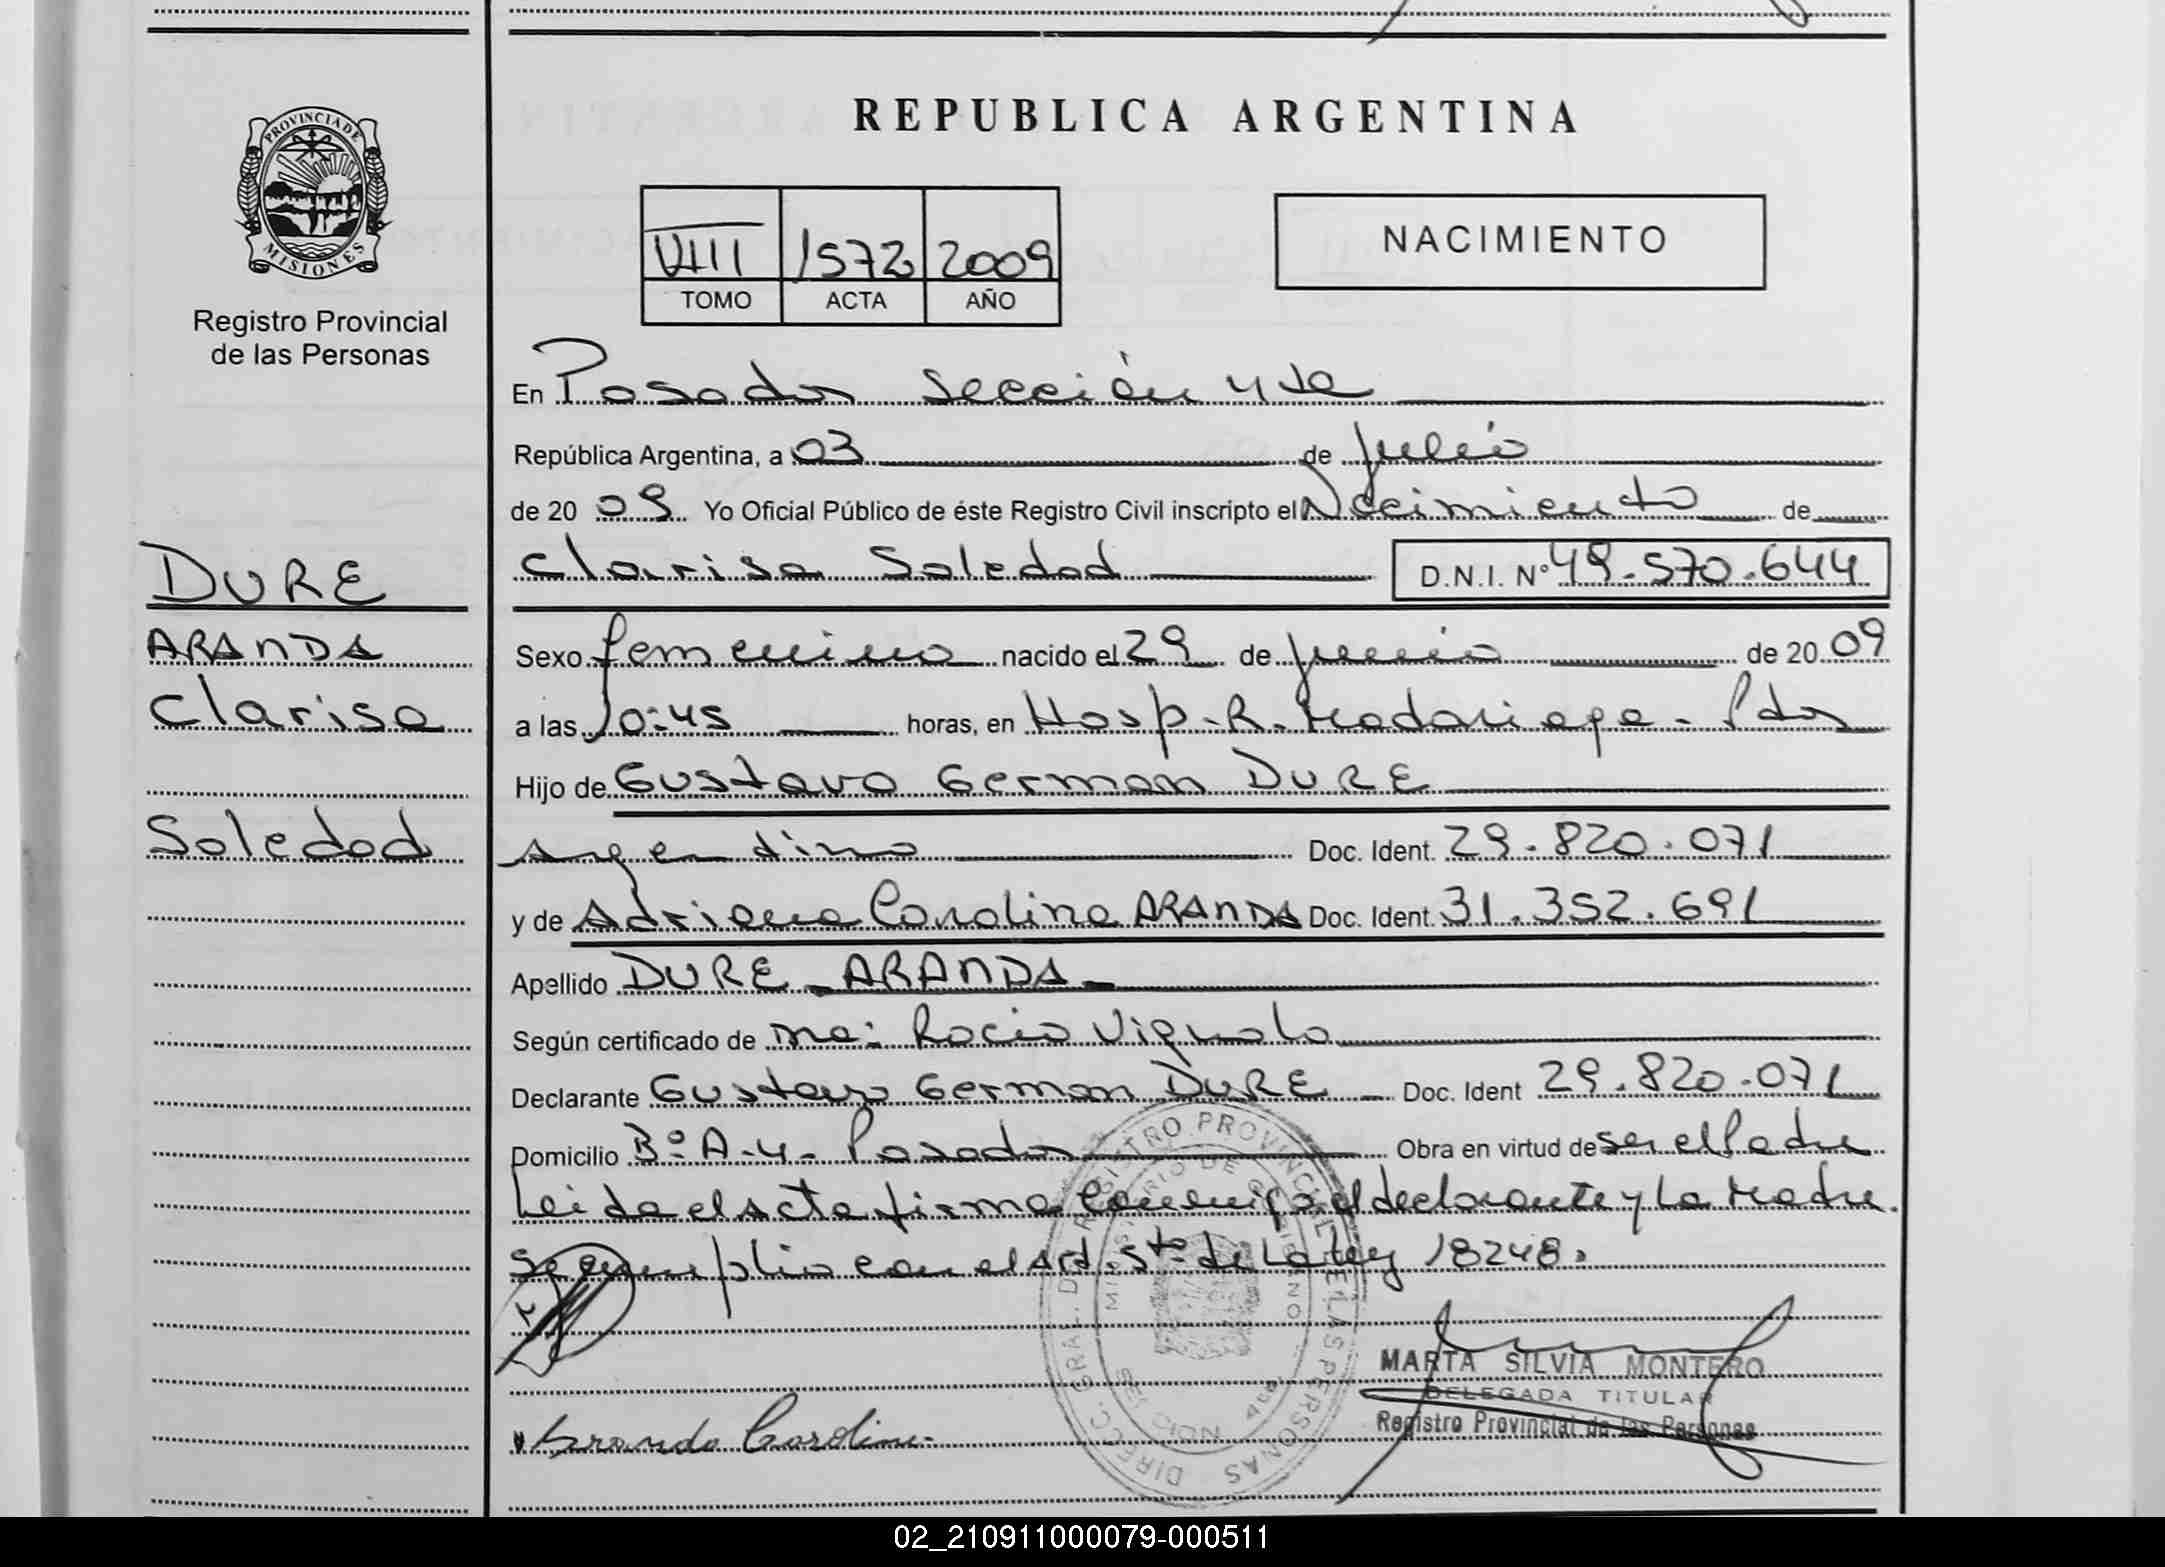 REPUBLICA ARGENTINA
PROVINCIA DE
MISIONES
Registro Provincial
de las Personas
VIII 1572 2009
TOMO ACTA AÑO
NACIMIENTO
En Posadas Sección 4ta
República Argentina, a 03 de Julio
de 20 09 Yo Oficial Público de éste Registro Civil inscripto el Nacimiento de
Clarisa Soledad D.N.I. Nº 49.570.644
Sexo femenino nacido el 29 de junio de 20 09
a las 10:45 horas, en Hosp. R. Madariaga - Pdas
Hijo de Gustavo German DURE
argentino Doc. Ident. 29.820.071
y de Adriana Carolina ARANDA Doc. Ident. 31.352.691
Apellido DURE ARANDA
Según certificado de Ma: Rocio Vignolo
Declarante Gustavo German DURE Doc. Ident 29.820.071
Domicilio Bº A-4- Posadas Obra en virtud de ser el Padre
Leida el acta firma conmigo el declarante y la Madre.
Se cumplio con el Art. 5to de la Ley 18248.
DURE
ARANDA
Clarisa
Soledad
Aranda Carolina
DIRECC. GRAL. DE REGISTRO PROVINCIAL DE LAS PERSONAS
MINISTERIO DE GOBIERNO
MARTA SILVIA MONTERO
DELEGADA TITULAR
Registro Provincial de las Personas
02_210911000079-000511